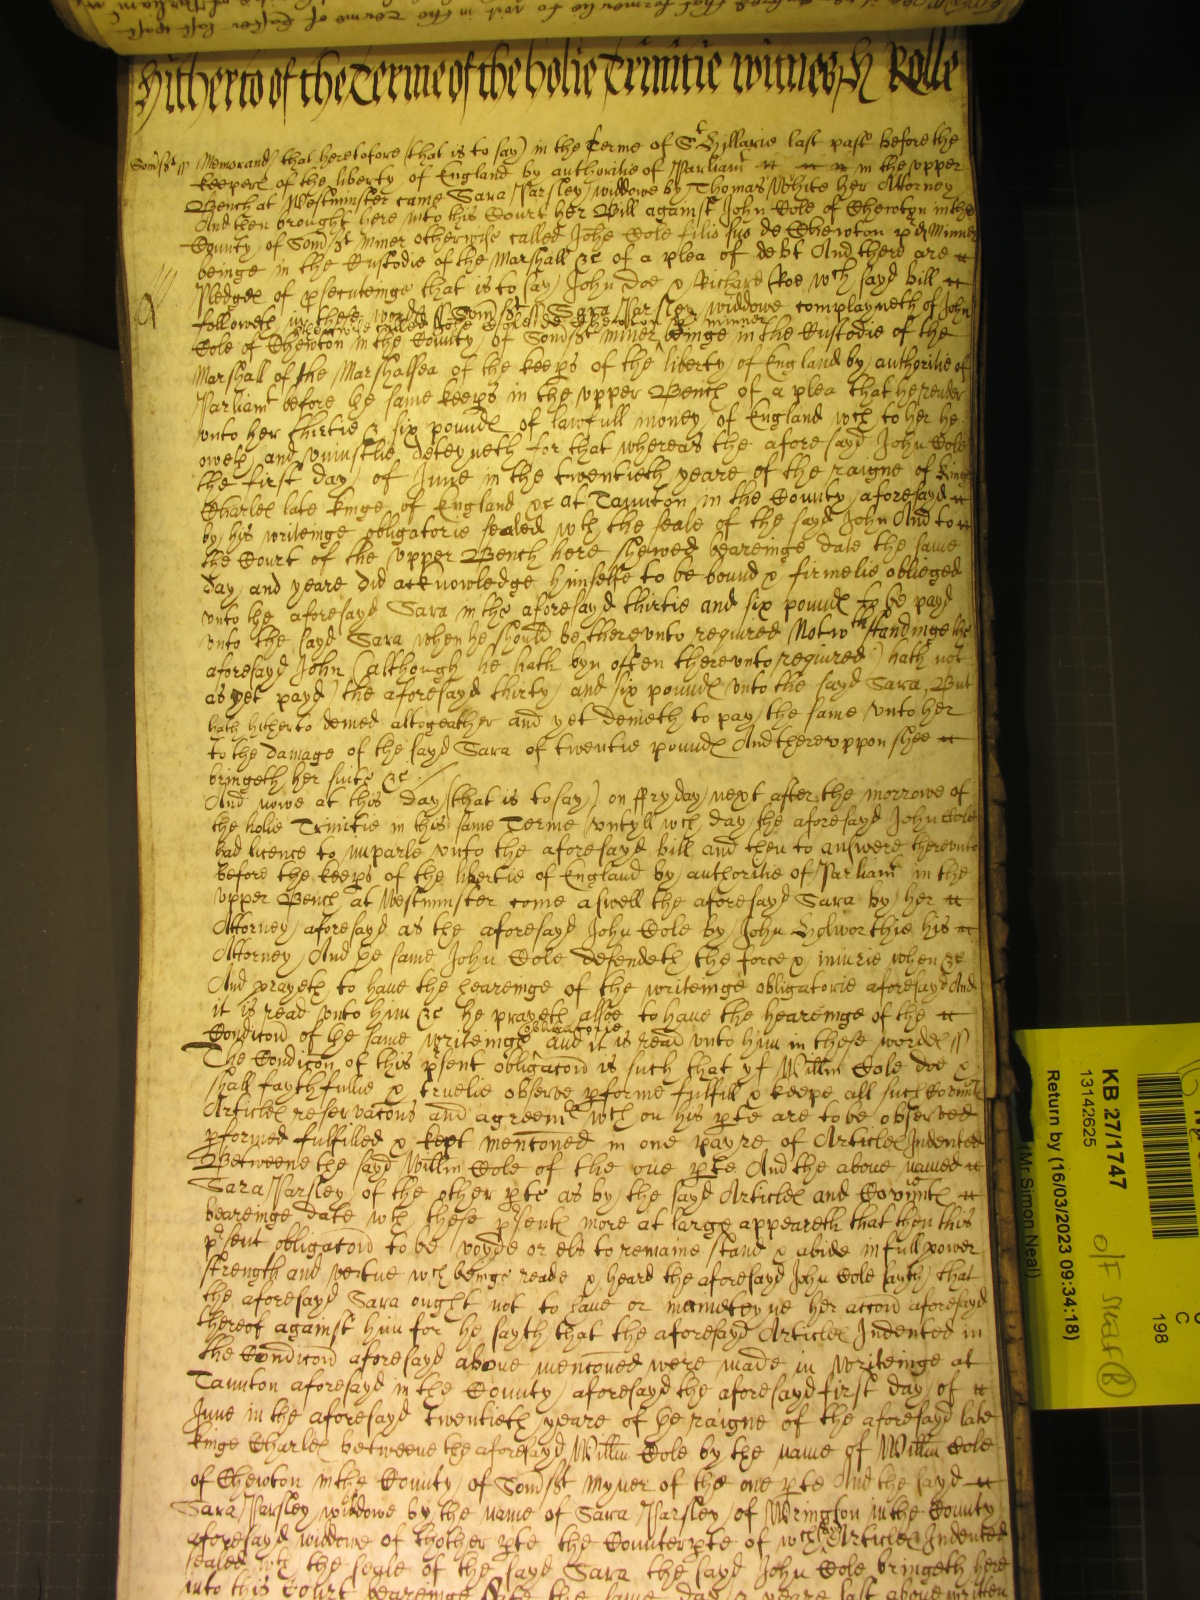 Hitherto of the Terme of the holie Trinitie witnes H Rolle
Som̄st ss Memorand that heretofore (that is to say) in the Terme of St Hillarie last past before the
keepers of the liberty of England by authoritie of Parliamt in the vpper
Bench at Westminster came Sara Parsley widdowe by Thomas White her Attorney
And then brought here into this Court her Bill against John Cole of Chewton in the
County of Som̄st Miner otherwise called John Cole filio suo de Chewton pd Minner
beinge in the Custodie of the Marshall &c of a plea of debt And there are
Pledges of psecuteinge that is to say John Doe & Richard Roe wch sayd bill
followeth in these words ss Som̄st ss Sara Parsley widdowe complayneth of John
Cole of Chewton in the County of Som̄st miner beinge in the Custodie of the
Marshall of the Marshalsea of the keeps of the liberty of England by authoritie of
Parliamt before the same keeps in the vpper Bench of a plea that he render
vnto her thirtie & six pounds of lawfull money of England wch to her he
oweth and vniustlie deteyneth for that whereas the aforesayd John Cole
the first day of June in the twentieth yeare of the raigne of Kinge
Charles late kinge of England &c at Taunton in the County aforesayd
by his writeinge obligatorie sealed wth the seale of the sayd John And to
the Court of the vpper Bench here shewed beareinge date the same
day and yeare did acknowledge himselfe to be bound & firmelie oblieged
vnto the aforesayd Sara in the aforesayd thirtie and six pounds to be payd
vnto the sayd Sara when he should be therevnto required Notwthstandinge the
aforesayd John (although he hath byn often therevnto required) hath not
as yet payd the aforesayd thirty and six pounds vnto the sayd Sara, But
hath hitherto denied altogeather and yet denieth to pay the same vnto her
to the damage of the sayd Sara of twentie pounds And therevppon shee
bringeth her suite &c
And nowe at this day (that is to say) on ffryday next after the morrowe of
the holie Trinitie in this same Terme vntyll wch day the aforesayd John Cole
had licence to imparle vnto the aforesayd bill and then to answere therevnto
before the keeps of the libertie of England by authoritie of Parliamt in the
vpper Bench at Westminster come aswell the aforesayd Sara by her
Attorney aforesayd as the aforesayd John Cole by John Holworthie his
Attorney And the same John Cole defendeth the force & iniurie when &c
And prayeth to haue the heareinge of the writeinge obligatorie aforesayd And
it is read vnto him &c he prayeth alsoe to haue the heareinge of the
Condicon of the same writeinge obligatorie and it is read vnto him in these words ss
The Condicon of this psent obligacon is such that yf Willm Cole doe &
shall faythfullie & truelie observe pforme fulfill & keepe all such Covnts
Articles reservacons and agreemts wch on his pte are to be observed
pformed fulfilled & kept mencioned in one payre of Articles Indented
Betweene the sayd Willm Cole of the one pte And the above named
Sara Parsley of the other pte as by the sayd Articles and Covnts
beareinge date wth these psents more at large appeareth that then this
psent obligacon to be voyde or els to remaine stand & abide in full power
strength and vertue wch beinge reade & heard the aforesayd John Cole sayth that
the aforesayd Sara ought not to haue or mainteyne her accon aforesayd
thereof against him for he sayth that the aforesayd Articles Indented in
the Condicon aforesayd above mencioned were made in writeinge at
Taunton aforesayd in the County aforesayd the aforesayd first day of
June in the aforesayd twentieth yeare of the raigne of the aforesayd late
kinge Charles betweene the aforesayd Willm Cole by the name of Willm Cole
of Chewton in the County of Som̄st Myner of the one pte And the sayd
Sara Parsley widdowe by the name of Sara Parsley of Wrington in the County
aforesayd widdowe of thother pte the Counterpte of wch Articles Indented
sealed wth the seale of the sayd Sara the sayd John Cole bringeth here
into this Court beareinge date the same day & yeare last above written
KB 27/1747
13142625
Return by (16/03/2023 09:34:18)
(Mr Simon Neal)
C
198